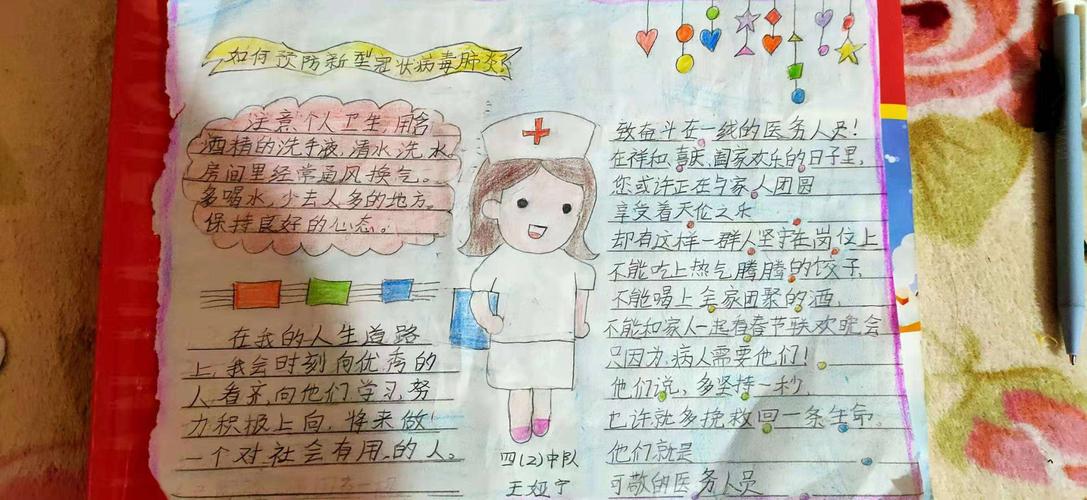 如何预防新型冠状病毒肺炎?
注意个人卫生,用含
酒精的洗手液,清水洗水
房间里经常通风换气。
多喝水,少去人多的地方。
保持良好的心态。
在我的人生道路
上,我会时刻向优秀的
人看齐,向他们学习,努
力积极上向,将来做
一个对社会有用的人。
四(2)中队
王娅宁
致奋斗在一线的医务人员!
在祥和,喜庆,阖家欢乐的日子里,
您或许正在与家人团圆
享受着天伦之乐
却有这样一群人坚守在岗位上
不能吃上热气腾腾的饺子,
不能喝上全家团聚的酒,
不能和家人一起看春节联欢晚会
只因为,病人需要他们!
他们说,多坚持一秒,
也许就多挽救回一条生命。
他们就是
可敬的医务人员